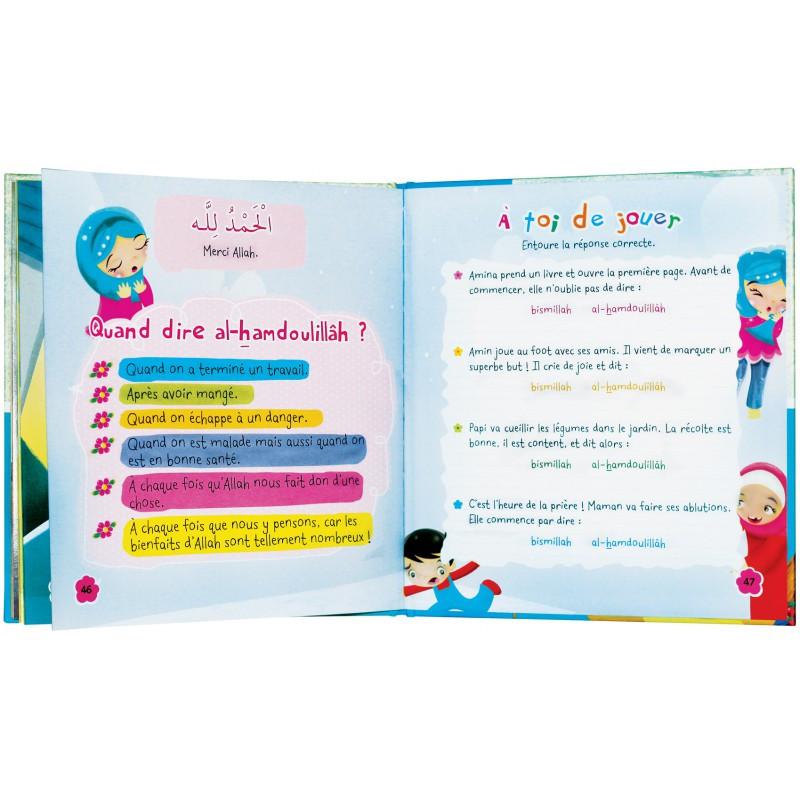 الْحَمْدُ لِلَّه
Merci Allah.
Quand dire al-hamdoulillâh ?
Quand on a terminé un travail.
Après avoir mangé.
Quand on échappe à un danger.
Quand on est malade mais aussi quand on
est en bonne santé.
A chaque fois qu'Allah nous fait don d'une
chose.
À chaque fois que nous y pensons, car les
bienfaits d'Allah sont tellement nombreux !
46
À toi de jouer
Entoure la réponse correcte.
Amina prend un livre et ouvre la première page. Avant de
commencer, elle n'oublie pas de dire :
bismillah al-hamdoulillâh
Amin joue au foot avec ses amis. Il vient de marquer un
superbe but ! Il crie de joie et dit :
bismillah al-hamdoulillâh
Papi va cueillir les légumes dans le jardin. La récolte est
bonne, il est content, et dit alors :
bismillah al-hamdoulillâh
C'est l'heure de la prière ! Maman va faire ses ablutions.
Elle commence par dire :
bismillah al-hamdoulillâh
47